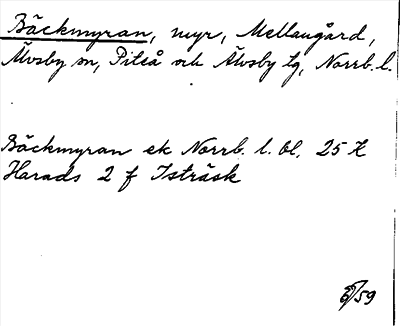 Bäckmyran, myr, Mellangård,
Älvsby sn, Piteå o Älvsby tg, Norrb. l.
Bäckmyran ek Norrb. l. bl. 25 K
Harads 2 f Isträsk
/59